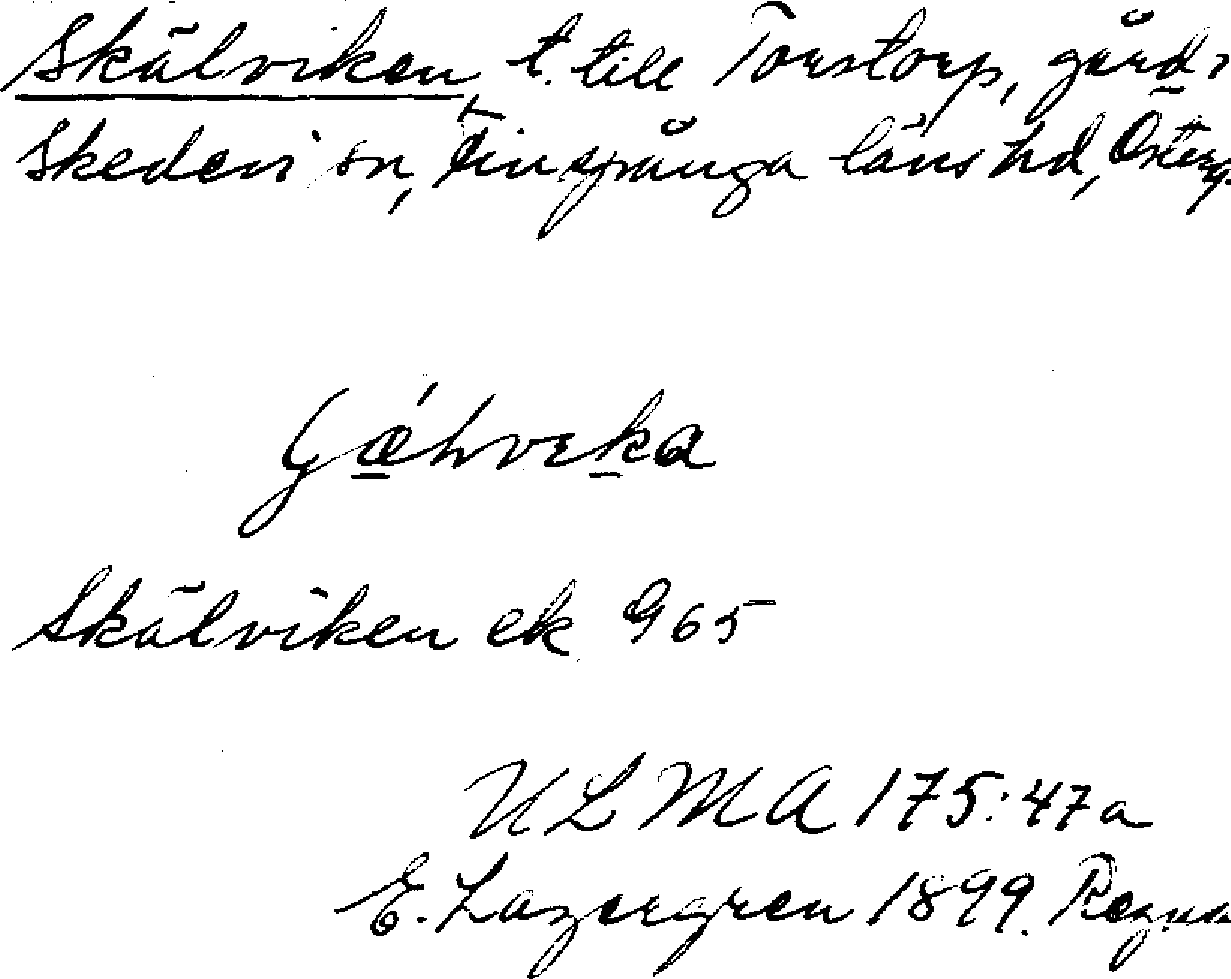 Skälviken, t. till Torstorp, gård i
Skedevi sn, Finspånga läns hd, Österg.
Skälviken ek 965
ULMA 175:47a
E. Lazergren 1899. Regna